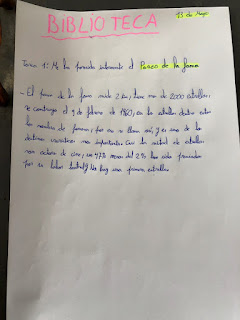 BIBLIOTECA
13 de Mayo
Tarea 1: Me ha parecido interesante el Paseo de la fama
- El paseo de la fama mide 2 km, tiene mas de 2000 estrellas,
se construyo el 9 de febrero de 1960, en las estrellas dentro estan
los nombres de famosos, por eso se llama así, y es uno de los
destinos turisticos mas importantes. Casi la mitad de estrellas
son actores de cine, un 47% menos del 2% han sido premiados
por su labor teatral y No hay una primera estrella.